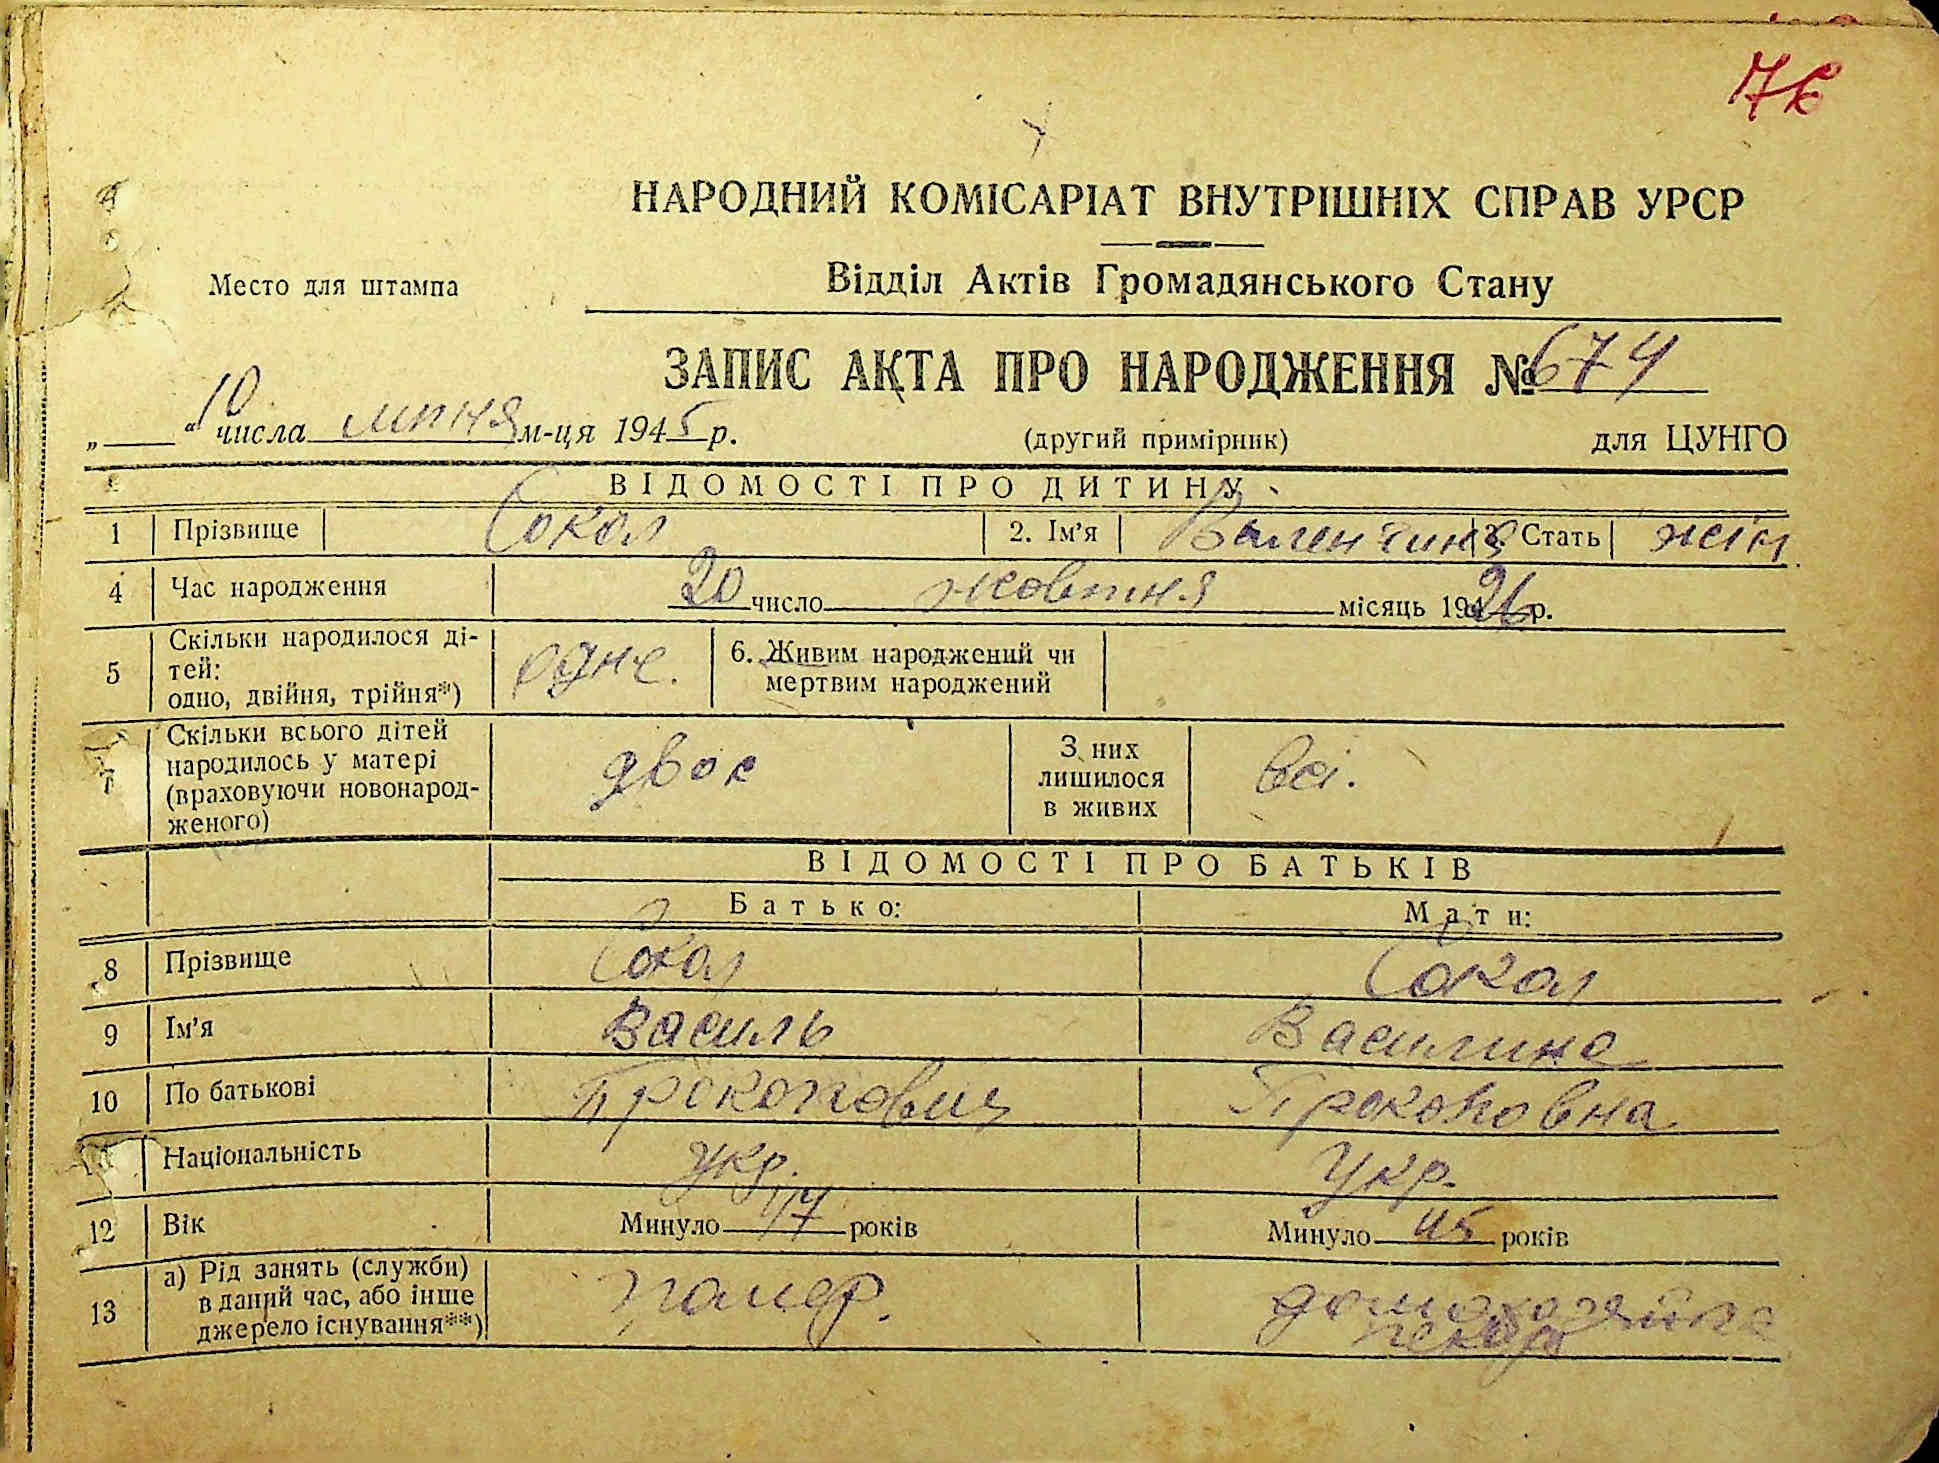 НАРОДНИЙ КОМІСАРІАТ ВНУТРІШНІХ СПРАВ УРСР
Место для штампа
Відділ Актів Громадянського Стану
ЗАПИС АКТА ПРО НАРОДЖЕННЯ № 674
„ “ 10 числа липня м-ця 1945 р. (другий примірник) для ЦУНГО
ВІДОМОСТІ ПРО ДИТИНУ
1 Прізвище Сокол 2. Ім’я Валентина 3. Стать жін.
4 Час народження 20 число жовтня місяць 1926 р.
5 Скільки народилося ді-
тей:
одно, двійня, трійня*) одне. 6. Живим народжений чи
мертвим народжений
7 Скільки всього дітей
народилось у матері
(враховуючи новонарод-
женого) двоє З них
лишилося
в живих всі.
ВІДОМОСТІ ПРО БАТЬКІВ
Батько: Мати:
8 Прізвище Сокол Сокол
9 Ім’я Василь Василина
10 По батькові Прокопович Прокоповна
11 Національність укр. Укр.
12 Вік Минуло 47 років Минуло 45 років
13 а) Рід занять (служби)
в даний час, або інше
джерело існування**) помер. домохозяйка